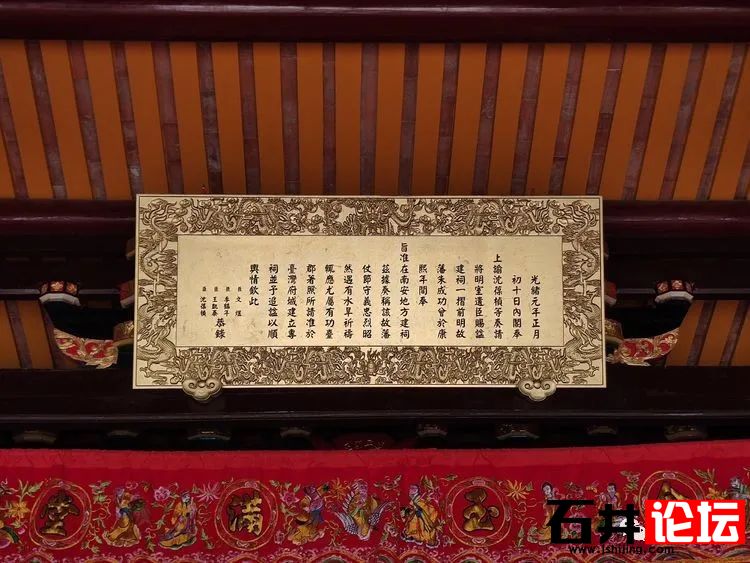 光緒元年正月
初十日內閣奉
上諭沈保楨等奏請
將明室遺臣賜諡
建祠一摺前明故
藩朱成功曾於康
熙年間奉
旨准在南安地方建祠
茲據奏稱該故藩
仗節守義忠烈昭
然遇有水旱祈禱
輒應尤屬有功臺
郡著照所請准於
臺灣府城建立專
祠並予追諡以順
輿情欽此
臣文煜
臣李鶴年
臣王凱泰
臣沈保楨
恭錄
玉滿堂
石井论坛